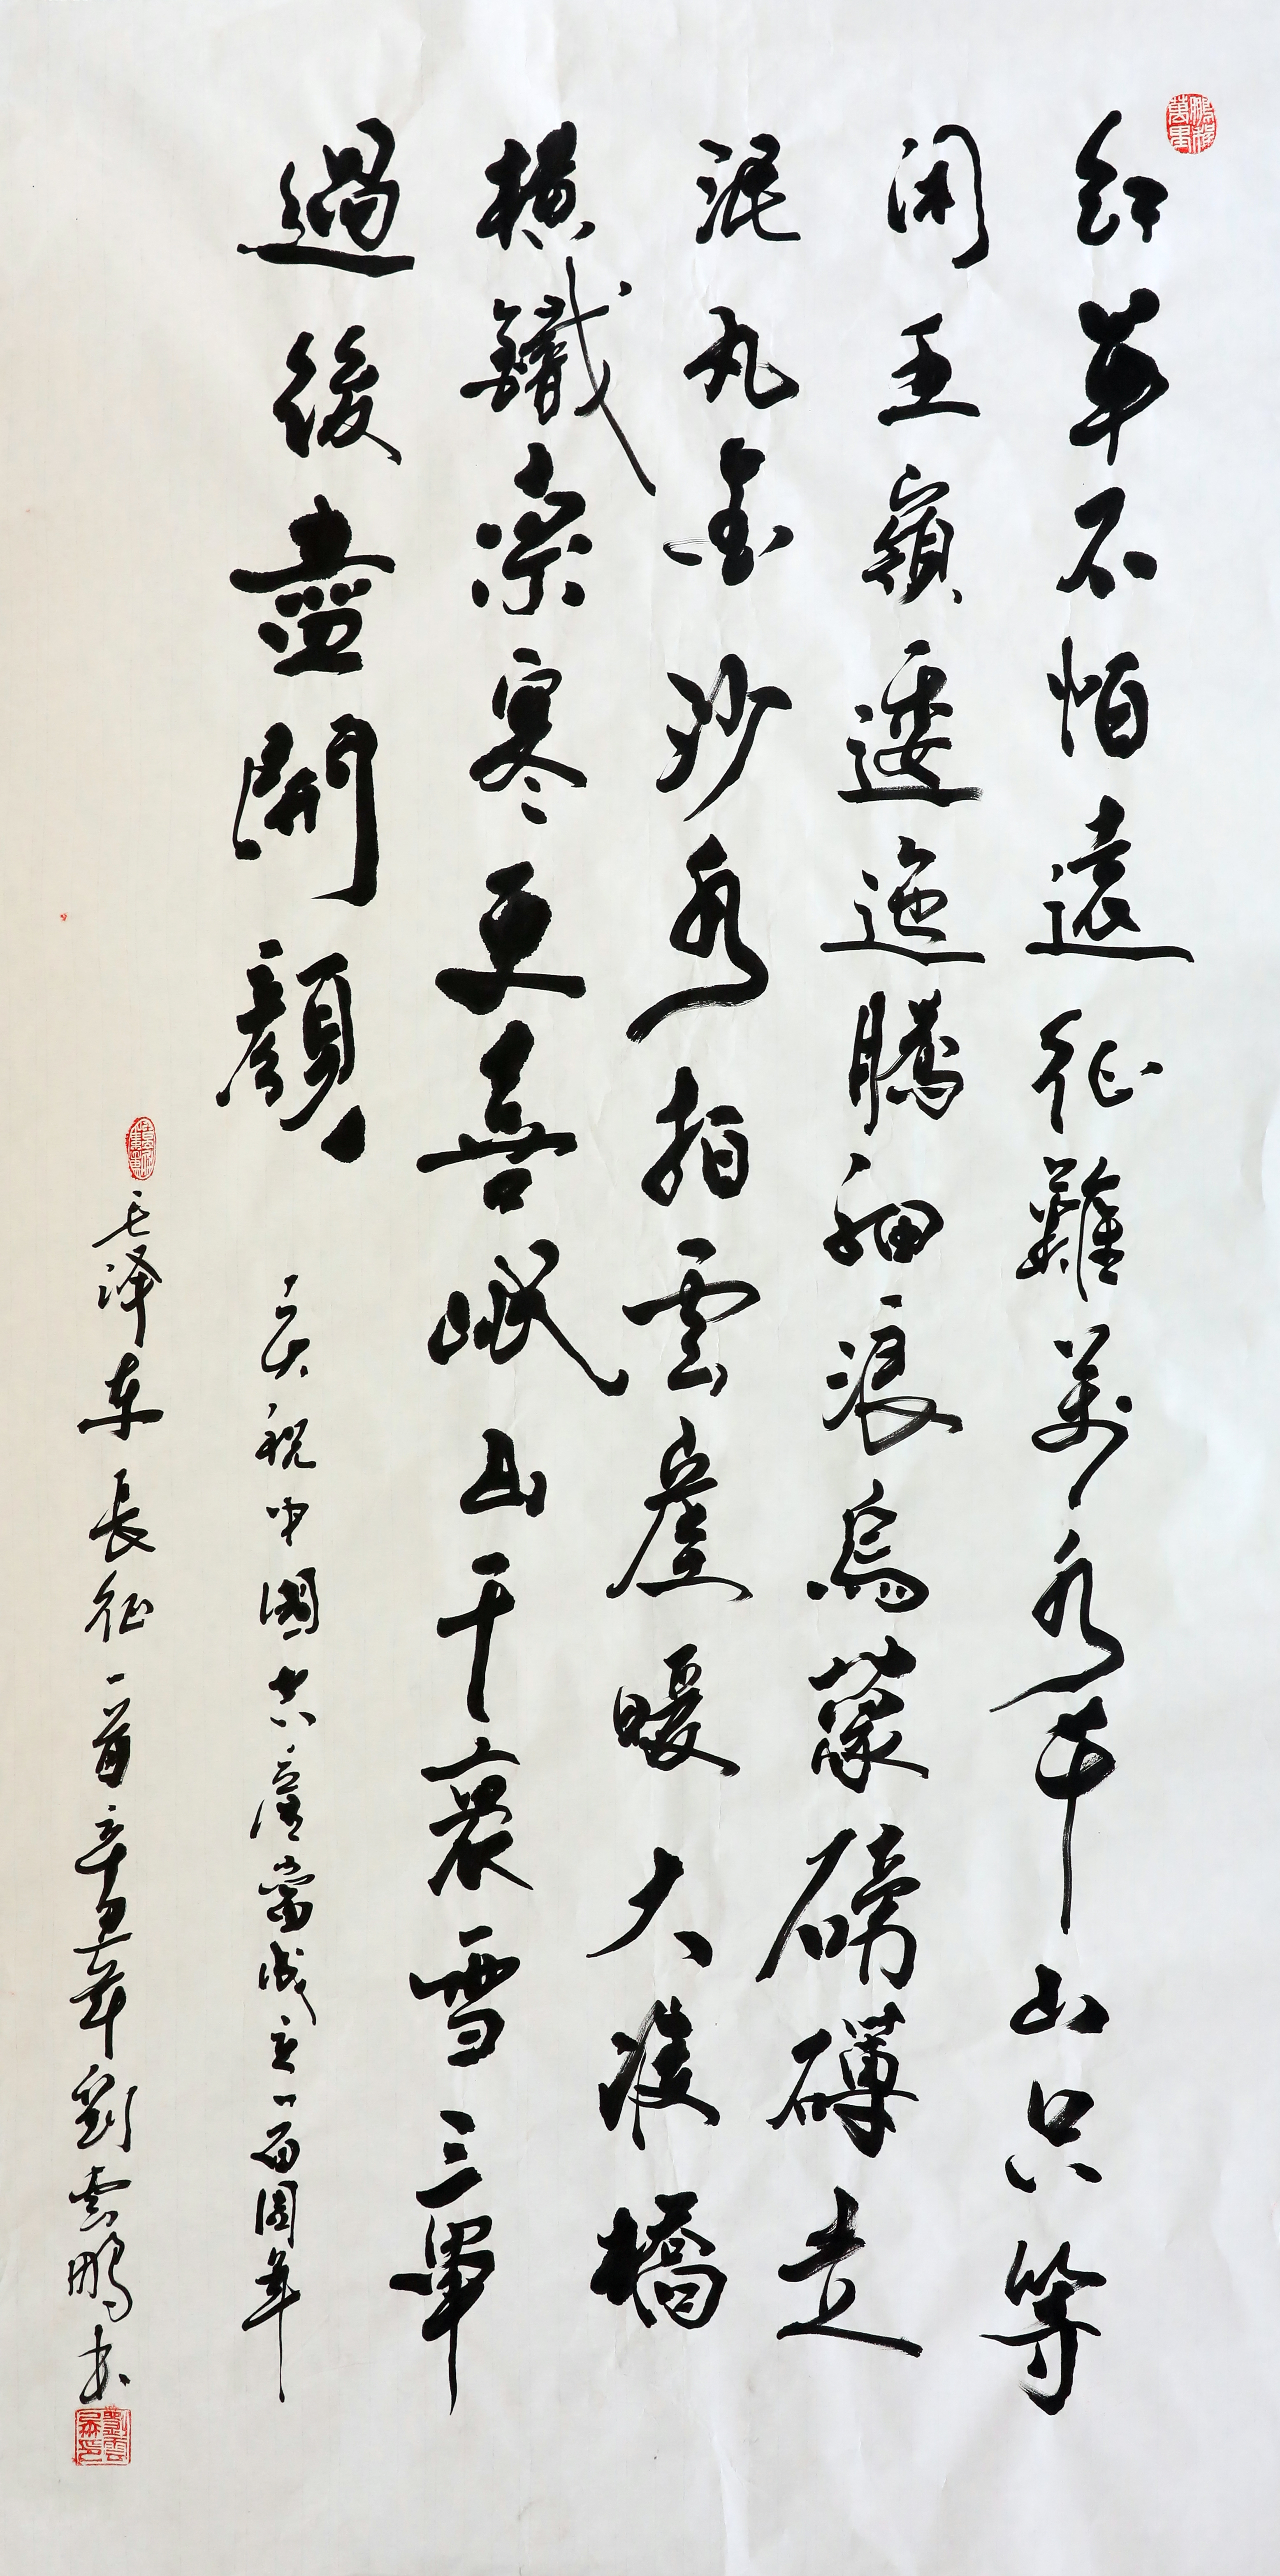 鵬程萬里
紅軍不怕遠征難萬水千山只等
闲五嶺逶迤騰細浪烏蒙磅礴走
泥丸金沙水拍雲崖暖大渡橋
横鐵索寒更喜岷山千裏雪三軍
過後盡開顔
庆祝中國共產黨成立一百周年
毛泽东長征一首辛丑年劉雲鵬书
劉雲鵬印